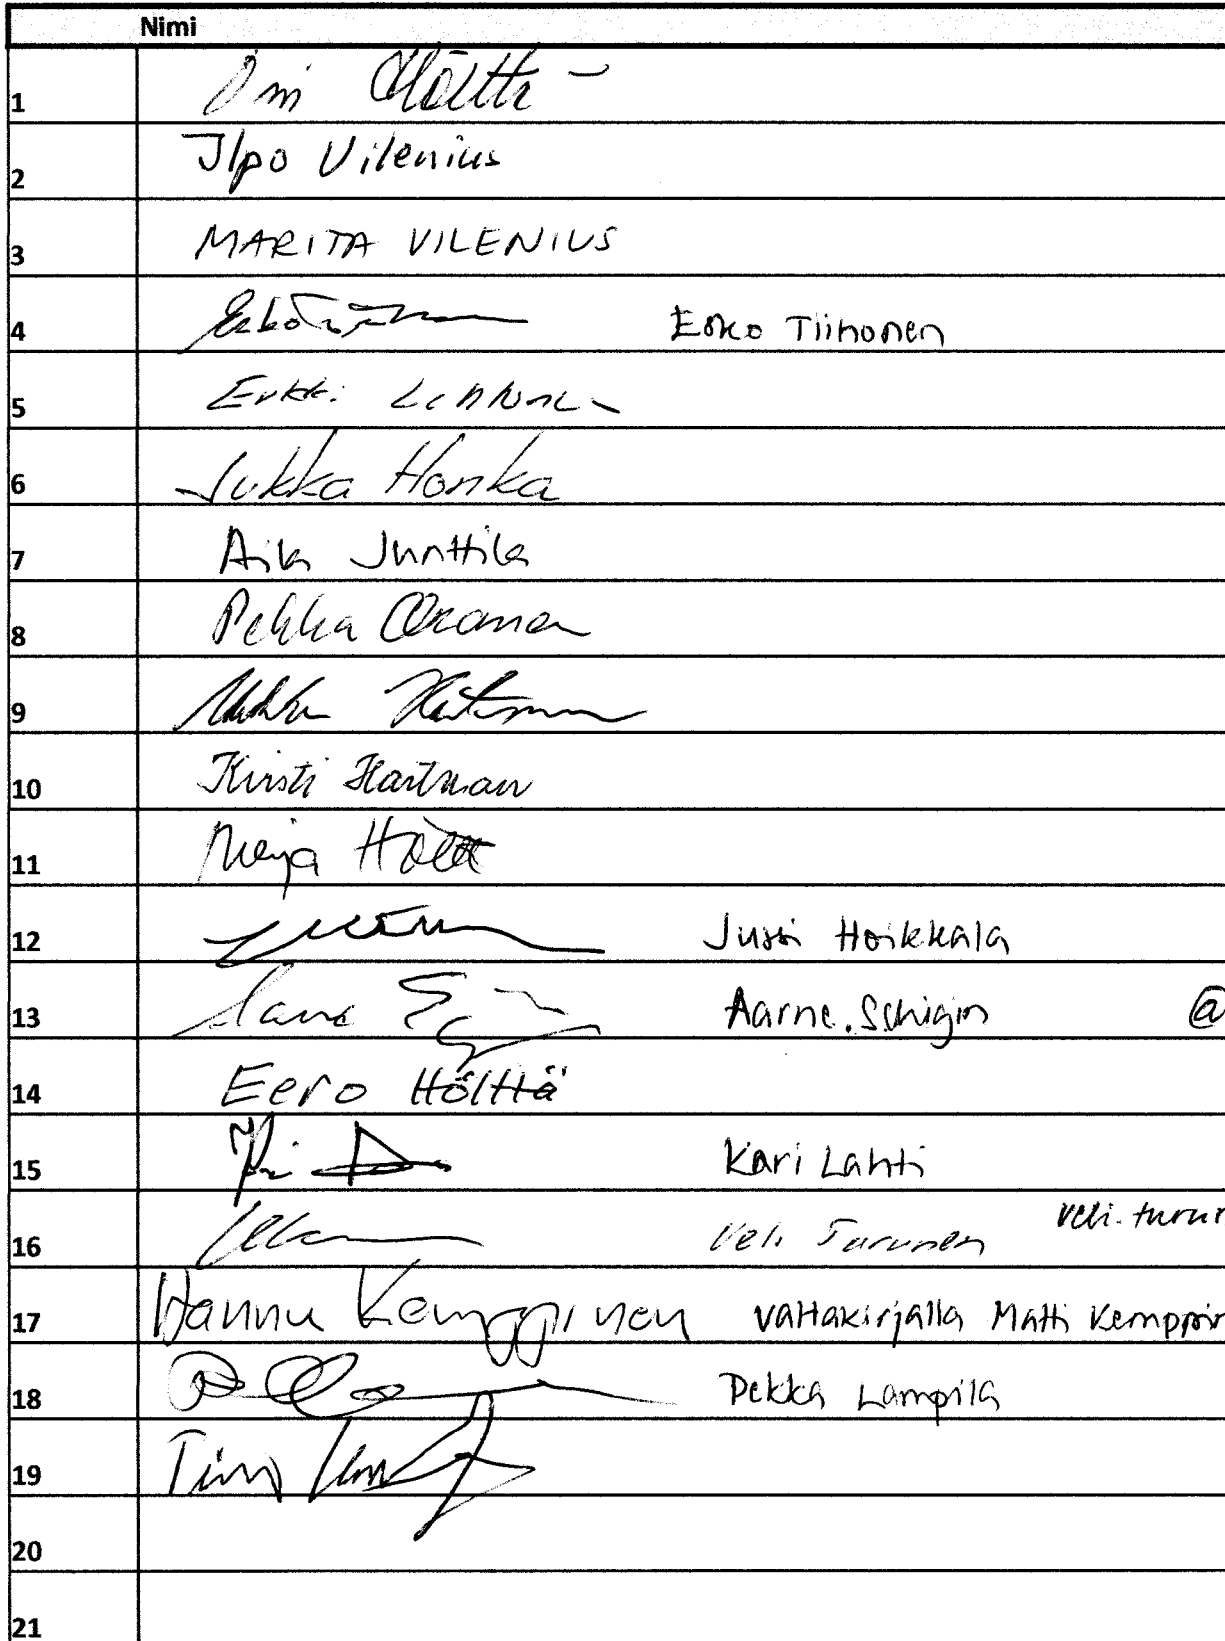 Nimi
1
2 Ilpo Vilenius
3 MARITA VILENIUS
4 Esko Tiihonen
5 Erkki
6 Jukka Honka
7 Aila Junttila
8 Pekka
9
10 Kirsti Hartman
11 Meija Höltt
12 Jussi Hoikkala
13 Aarne.Schigin @
14 Eero Hölttä
15 Kari Lahti
16 Veli Turunen veli.turun
17 Hannu Kemppinen valtakirjalla Matti Kemppin
18 Pekka Lampila
19 Timo
20
21